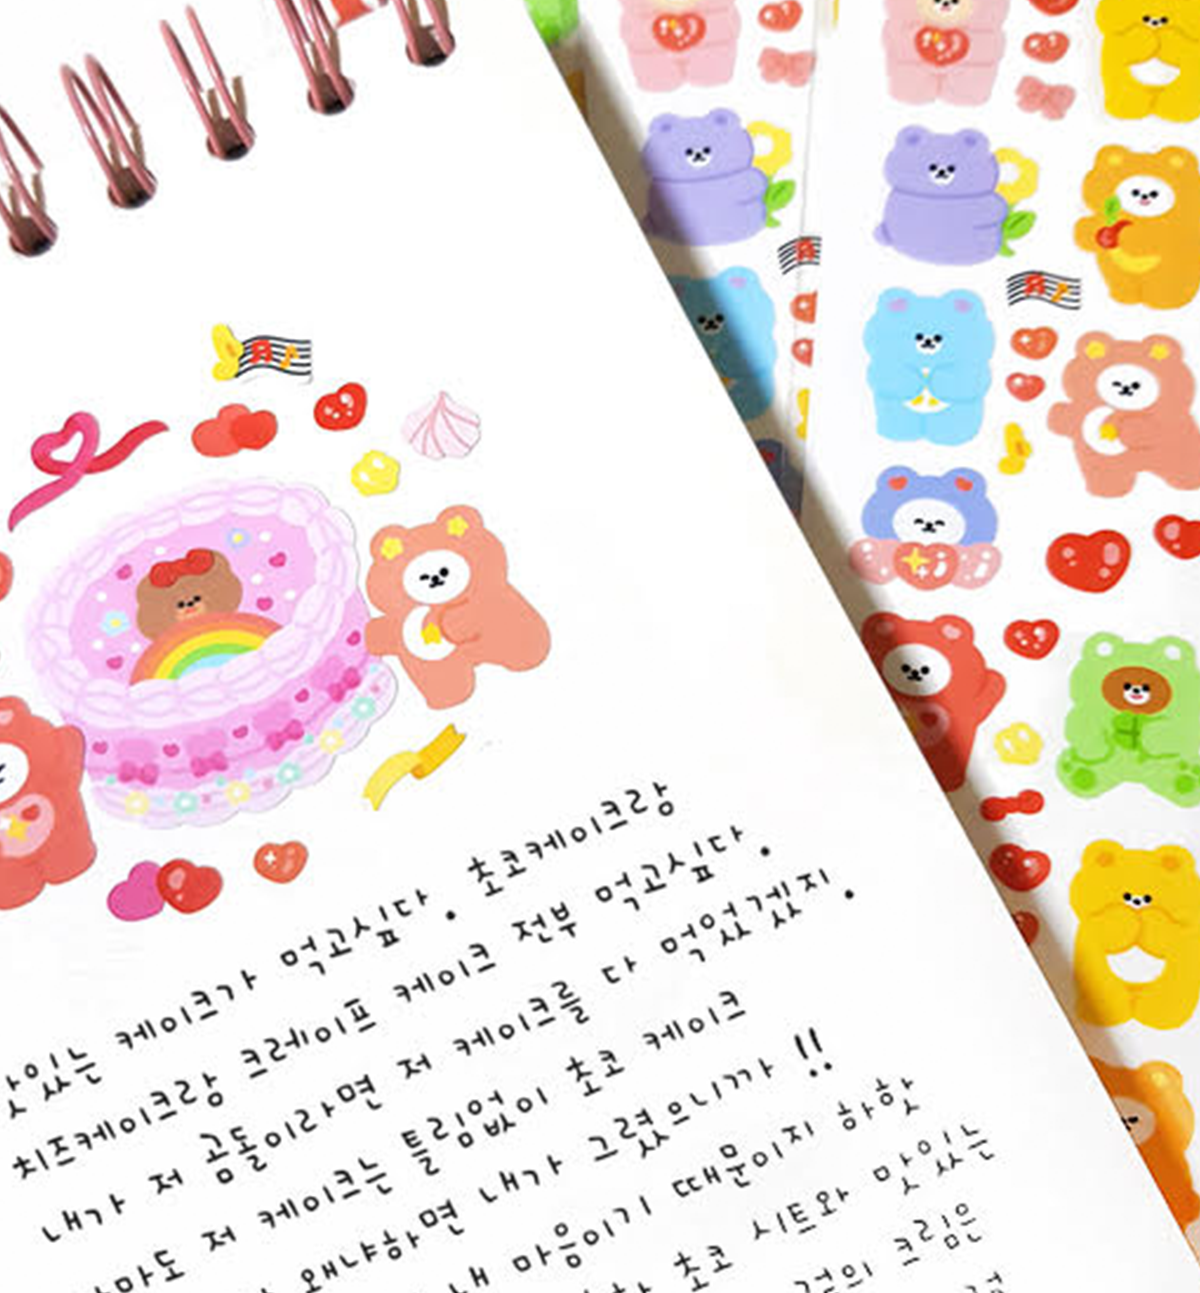 맛있는 케이크가 먹고싶다. 초코케이크랑
치즈케이크랑 크레이프 케이크 전부 먹고싶다.
내가 저 곰돌이라면 저 케이크를 다 먹었겠지.
저 케이크는 틀림없이 초코 케이크
왜냐하면 내가 그렸으니까!!
내 마음이기 때문이지 하핫
초코 시트와 맛있는
크림은